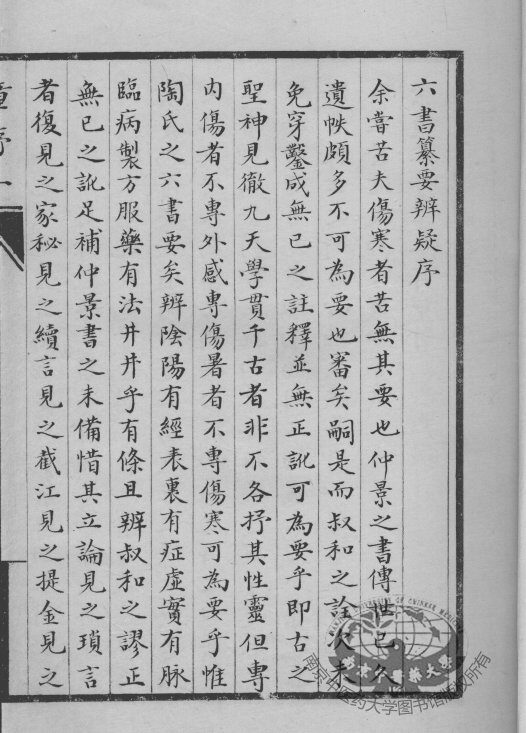 六書纂要辨疑序
余嘗苦夫傷寒者苦無其要也仲景之書傳世已久
遺帙頗多不可為要也審矣嗣是而叔和之詮次未
免穿鑿成無已之註釋並無正訛可為要乎即古之
聖神見徹九天學貫千古者非不各抒其性靈但專
內傷者不專外感專傷暑者不專傷寒可為要乎惟
陶氏之六書要矣辨陰陽有經表裏有症虛實有脉
臨病製方服藥有法井井乎有條且辨叔和之謬正
無已之訛足補仲景書之未備惜其立論見之瑣言
者復見之家秘見之續言見之截江見之提金見之
童序一
南京中医药大学图书馆版权所有